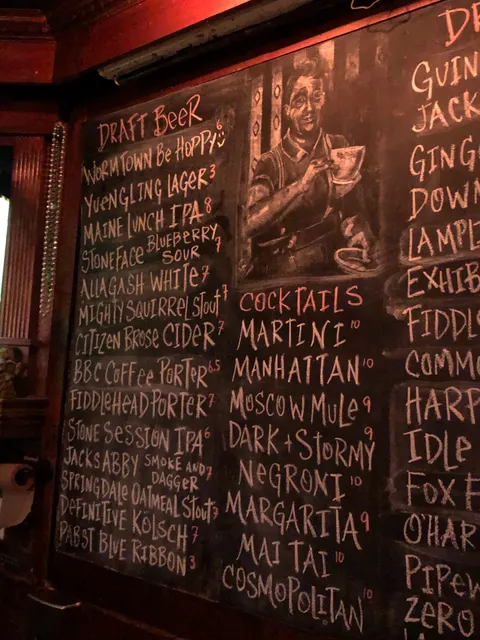 DRAFT BEER
WORMTOWN BE HOPPY 6
YUENGLING LAGER 3
MAINE LUNCH IPA 8
STONEFACE BLUEBERRY SOUR 7
ALLAGASH WHITE 7
MIGHTY SQUIRREL STOUT 7
CITIZEN BROSE CIDER 7
BBC COFFEE PORTER 6.5
FIDDLEHEAD PORTER 7
STONE SESSION IPA 6
JACKS ABBY SMOKE AND DAGGER 7
SPRINGDALE OATMEAL STOUT 7
DEFINITIVE KÖLSCH 7
PABST BLUE RIBBON 3
COCKTAILS
MARTINI 10
MANHATTAN 10
MOSCOW MULE 9
DARK + STORMY 9
NEGRONI 10
MARGARITA 9
MAI TAI 10
COSMOPOLITAN 10
DR
GUIN
JACK
GING
DOWN
LAMPL
EXHIB
FIDDL
COMMO
HARP
IDLE
FOX F
O'HAR
PIPEW
ZERO